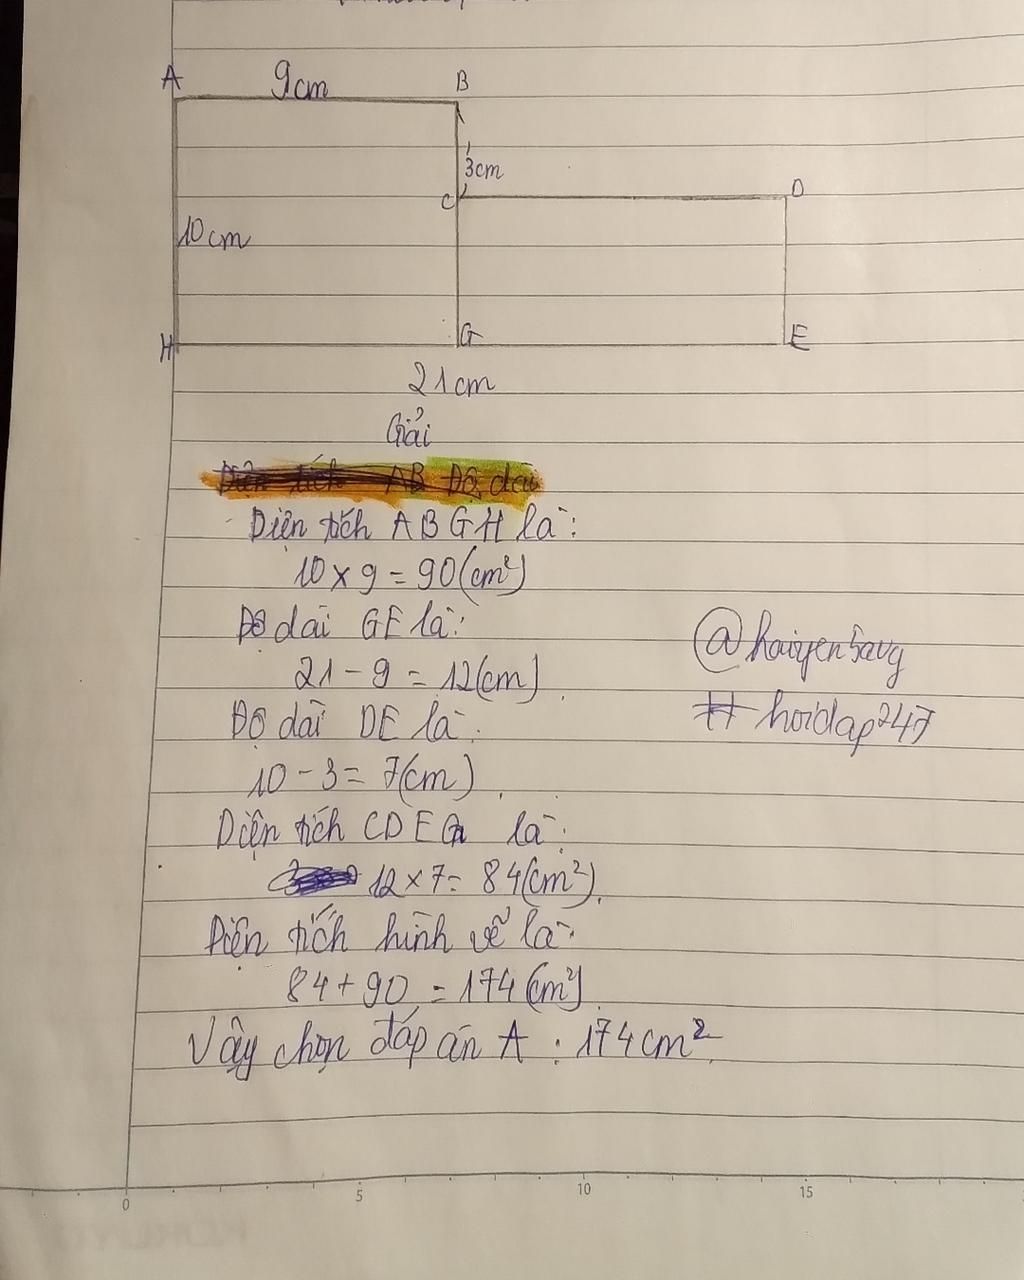 A 9cm B
3cm
C D
10cm
H G E
21cm
Giải
Diện tích AB Độ dài
Diện tích ABGH là:
10 x 9 = 90(cm²)
Độ dài GE là:
21 - 9 = 12(cm)
@haiyen5avg
Độ dài DE là:
#hoidap247
10 - 3 = 7(cm)
Diện tích CDEG là:
12 x 7 = 84(cm²)
Diện tích hình vẽ là:
84 + 90 = 174(cm²)
Vậy chọn đáp án A: 174cm²
0 5 10 15